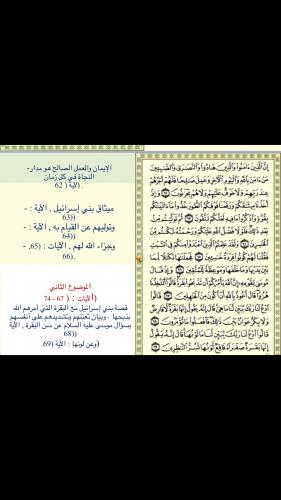 إِنَّ ٱلَّذِينَ ءَامَنُوا۟ وَٱلَّذِينَ هَادُوا۟ وَٱلنَّصَـٰرَىٰ وَٱلصَّـٰبِـِٔينَ
مَنْ ءَامَنَ بِٱللَّهِ وَٱلْيَوْمِ ٱلْـَٔاخِرِ وَعَمِلَ صَـٰلِحًا فَلَهُمْ أَجْرُهُمْ
عِندَ رَبِّهِمْ وَلَا خَوْفٌ عَلَيْهِمْ وَلَا هُمْ يَحْزَنُونَ ٦٢ وَإِذْ أَخَذْنَا
مِيثَـٰقَكُمْ وَرَفَعْنَا فَوْقَكُمُ ٱلطُّورَ خُذُوا۟ مَآ ءَاتَيْنَـٰكُم
بِقُوَّةٍ وَٱذْكُرُوا۟ مَا فِيهِ لَعَلَّكُمْ تَتَّقُونَ ٦٣ ثُمَّ تَوَلَّيْتُم مِّنۢ
بَعْدِ ذَٰلِكَ فَلَوْلَا فَضْلُ ٱللَّهِ عَلَيْكُمْ وَرَحْمَتُهُۥ لَكُنتُم مِّنَ
ٱلْخَـٰسِرِينَ ٦٤ وَلَقَدْ عَلِمْتُمُ ٱلَّذِينَ ٱعْتَدَوْا۟ مِنكُمْ فِى ٱلسَّبْتِ
فَقُلْنَا لَهُمْ كُونُوا۟ قِرَدَةً خَـٰسِـِٔينَ ٦٥ فَجَعَلْنَـٰهَا نَكَـٰلًا لِّمَا
بَيْنَ يَدَيْهَا وَمَا خَلْفَهَا وَمَوْعِظَةً لِّلْمُتَّقِينَ ٦٦ وَإِذْ قَالَ مُوسَىٰ
لِقَوْمِهِۦٓ إِنَّ ٱللَّهَ يَأْمُرُكُمْ أَن تَذْبَحُوا۟ بَقَرَةً قَالُوٓا۟ أَتَتَّخِذُنَا
هُزُوًا قَالَ أَعُوذُ بِٱللَّهِ أَنْ أَكُونَ مِنَ ٱلْجَـٰهِلِينَ ٦٧ قَالُوا۟
ٱدْعُ لَنَا رَبَّكَ يُبَيِّن لَّنَا مَا هِىَ قَالَ إِنَّهُۥ يَقُولُ إِنَّهَا بَقَرَةٌ لَّا فَارِضٌ
وَلَا بِكْرٌ عَوَانٌۢ بَيْنَ ذَٰلِكَ فَٱفْعَلُوا۟ مَا تُؤْمَرُونَ ٦٨ قَالُوا۟
ٱدْعُ لَنَا رَبَّكَ يُبَيِّن لَّنَا مَا لَوْنُهَا قَالَ إِنَّهُۥ يَقُولُ
إِنَّهَا بَقَرَةٌ صَفْرَآءُ فَاقِعٌ لَّوْنُهَا تَسُرُّ ٱلنَّـٰظِرِينَ ٦٩
الإيمان والعمل الصالح هو مدار-
النجاة في كل زمان
. الآية ( 62
ميثاق بني إسرائيل , الآية : -
((63
وتوليهم عن القيام به , الآية : -
((64
وجزاء الله لهم , الآيات : (65, -
.(66
الموضوع الثاني
(الآيات : ( 67 - 74
قصة بني إسرائيل مع البقرة التي أمرهم الله
بذبحها ، وبيان تعنتهم وتشديدهم على أنفسهم
بسؤال موسى عليه السلام عن سن البقرة , الآية
((68
وعن لونها : الآية (69).